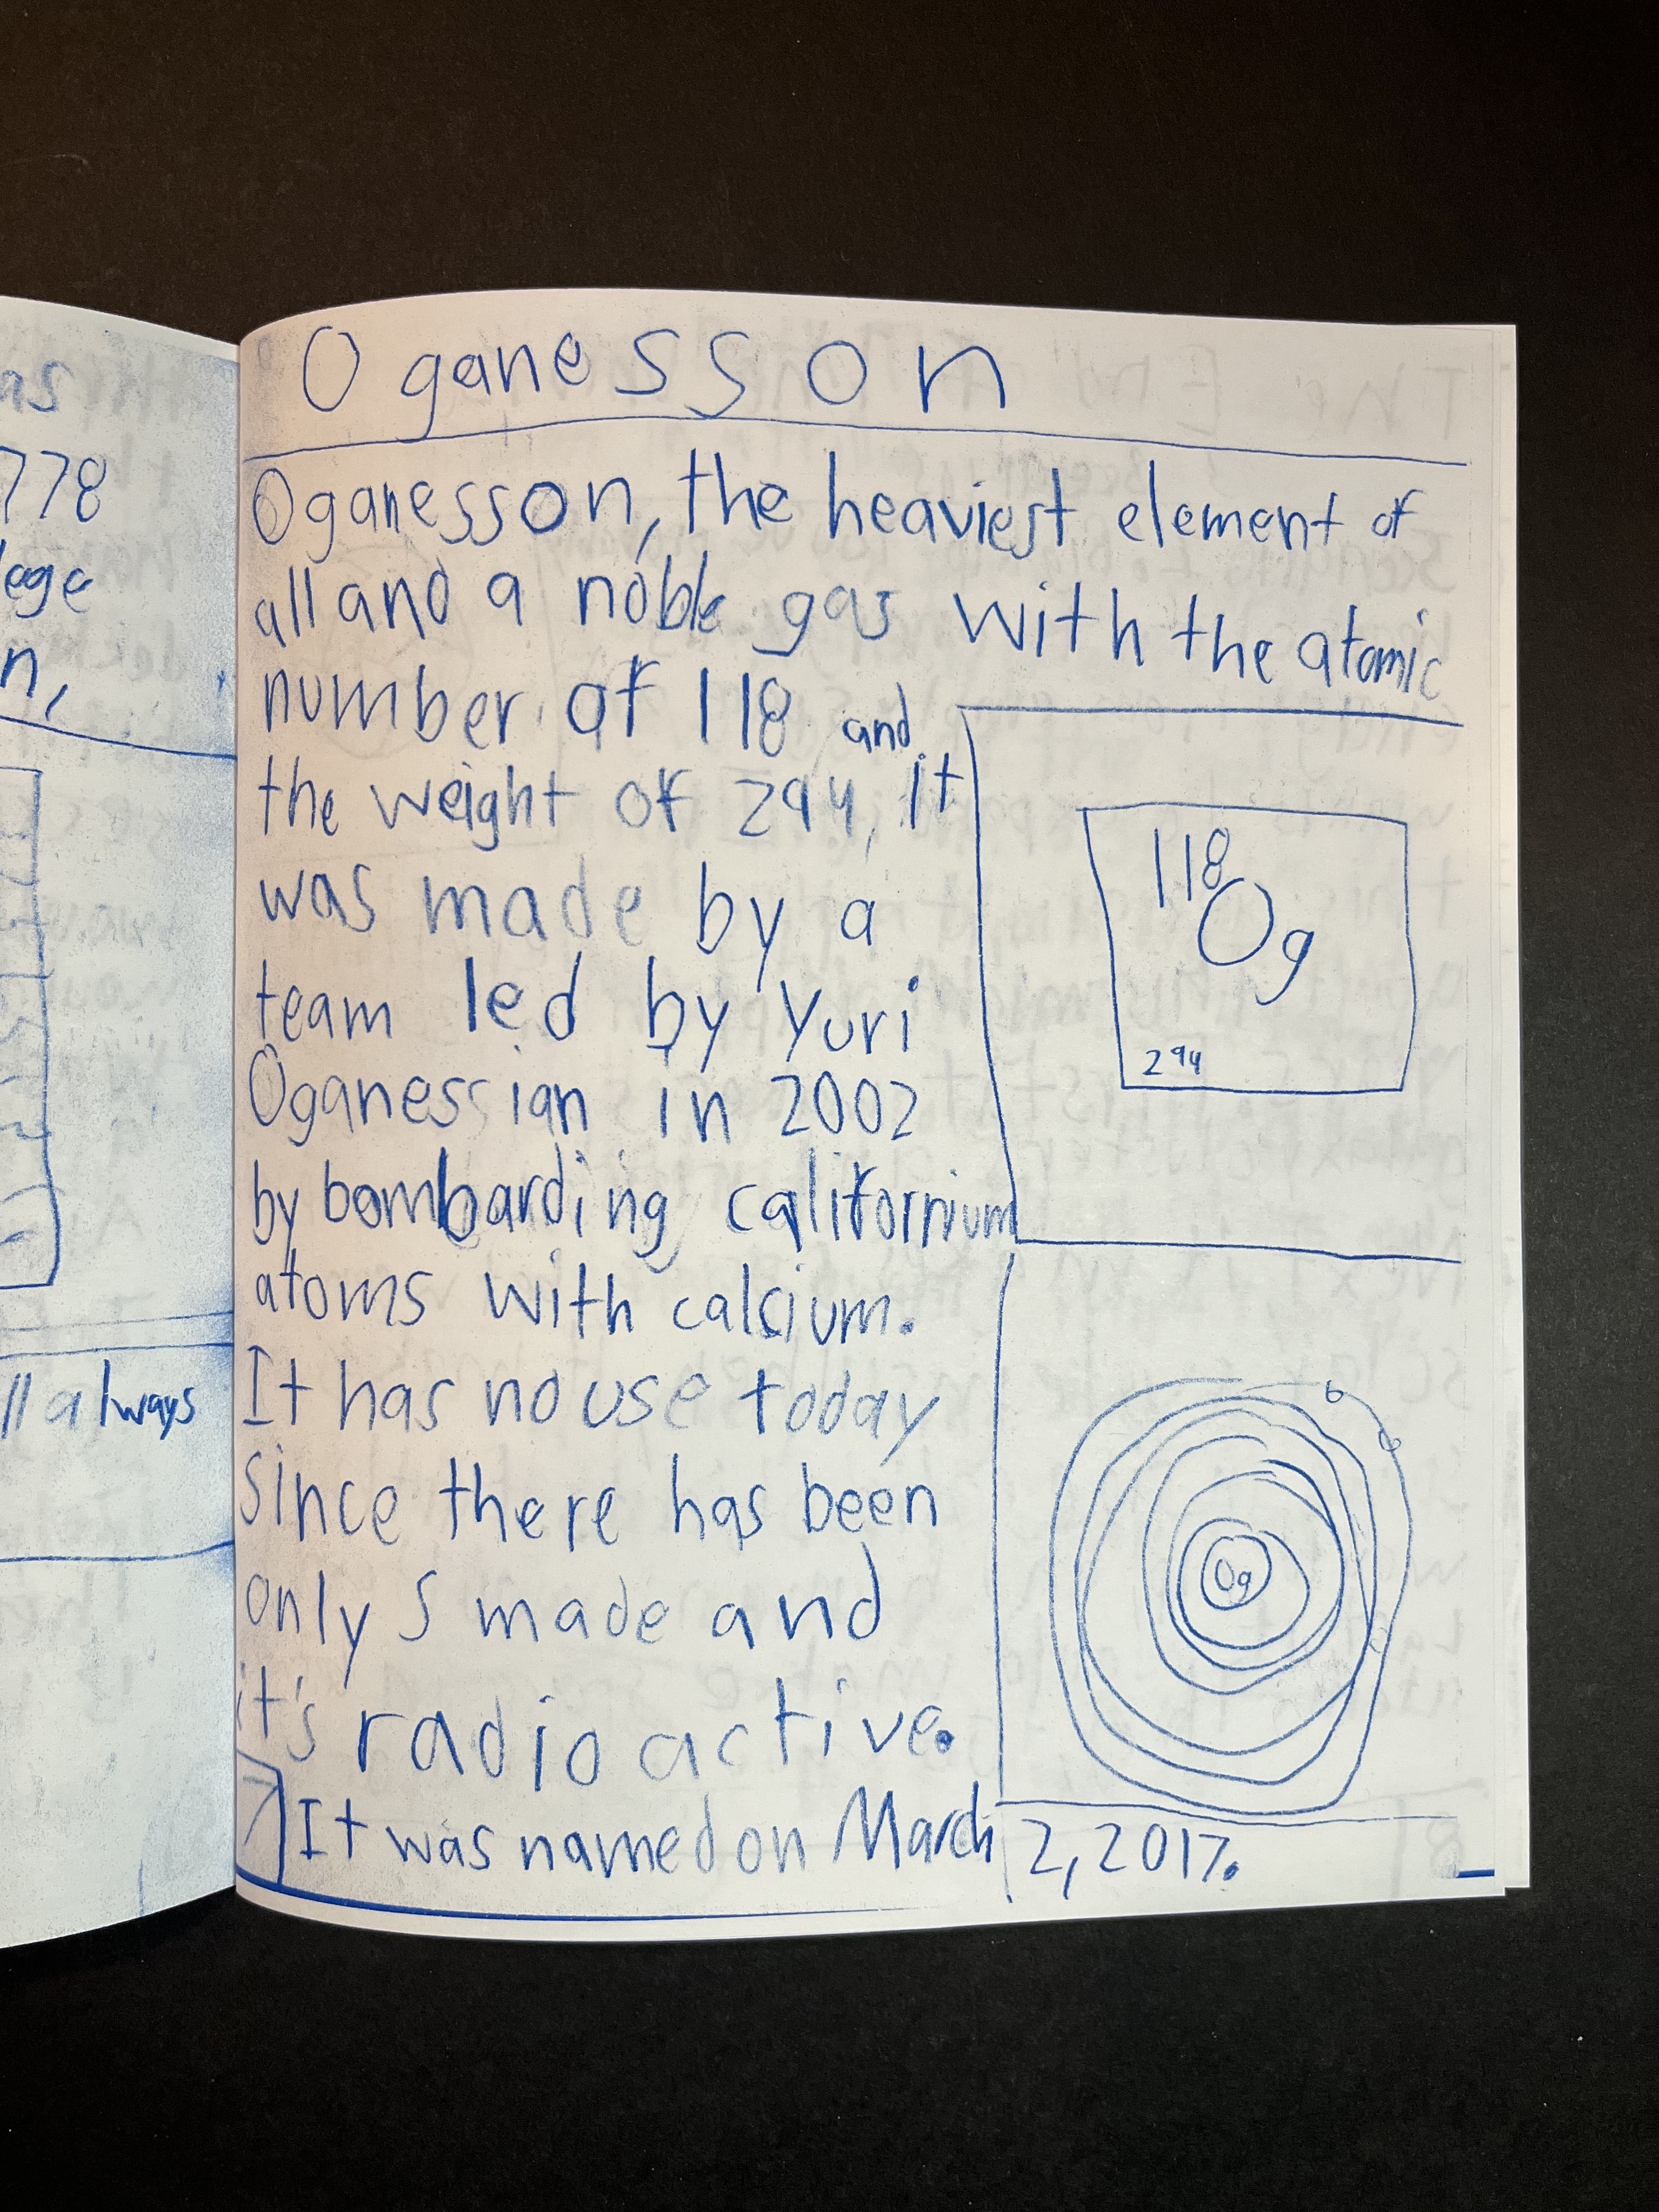 as
778
lege
n,
ll always
Oganesson
Oganesson, the heaviest element of
all and a noble gas with the atomic
number of 118 and
the weight of 294, it
was made by a
team led by Yuri
Oganessian in 2002
by bombarding californium
atoms with calsium.
It has no use today
since there has been
only 5 made and
it's radioactive.
It was named on March 2, 2017.
118
Og
294
Og